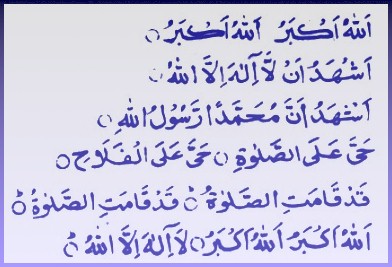 اَللّٰهُ اَكْبَرُ اَللّٰهُ اَكْبَرُ ○
اَشْهَدُ اَنْ لَّآ اِلٰهَ اِلَّا اللّٰهُ ○
اَشْهَدُ اَنَّ مُحَمَّدًا رَّسُوْلُ اللّٰهِ ○
حَيَّ عَلَى الصَّلٰوةِ ○ حَيَّ عَلَى الْفَلَاحِ ○
قَدْ قَامَتِ الصَّلٰوةُ ○ قَدْ قَامَتِ الصَّلٰوةُ ○
اَللّٰهُ اَكْبَرُ اَللّٰهُ اَكْبَرُ ○ لَآ اِلٰهَ اِلَّا اللّٰهُ ○